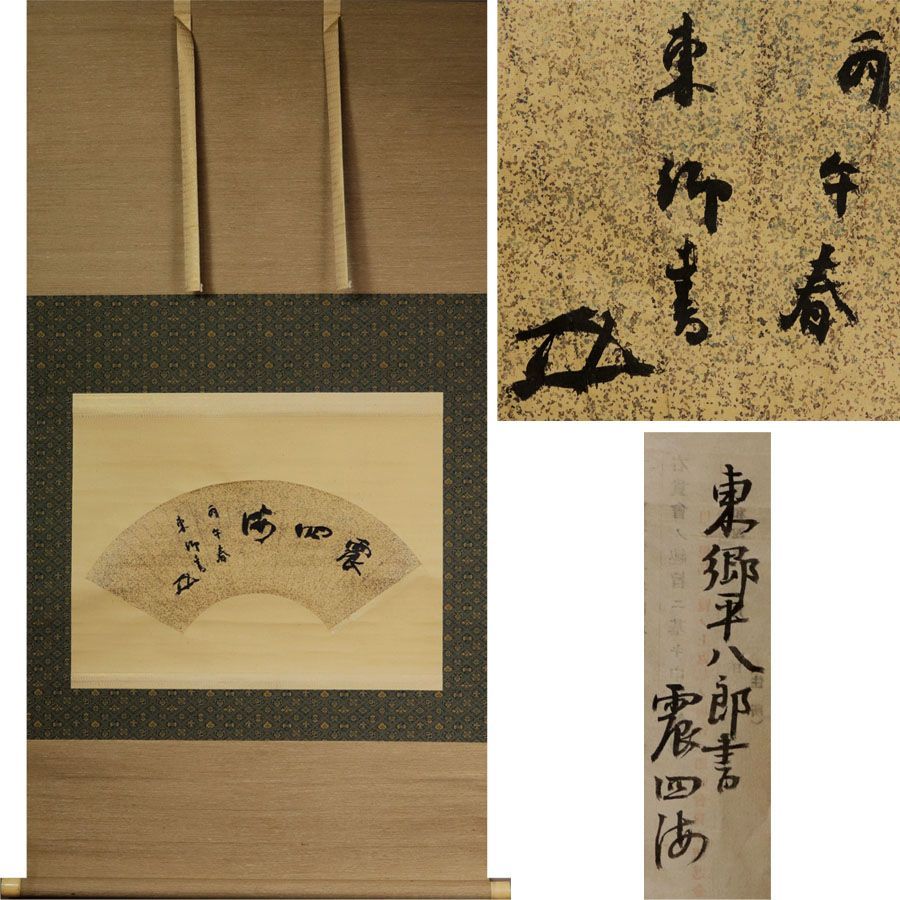 震四海
丙午春
東郷書
丙午春
東郷書
東郷平八郎書
震四海